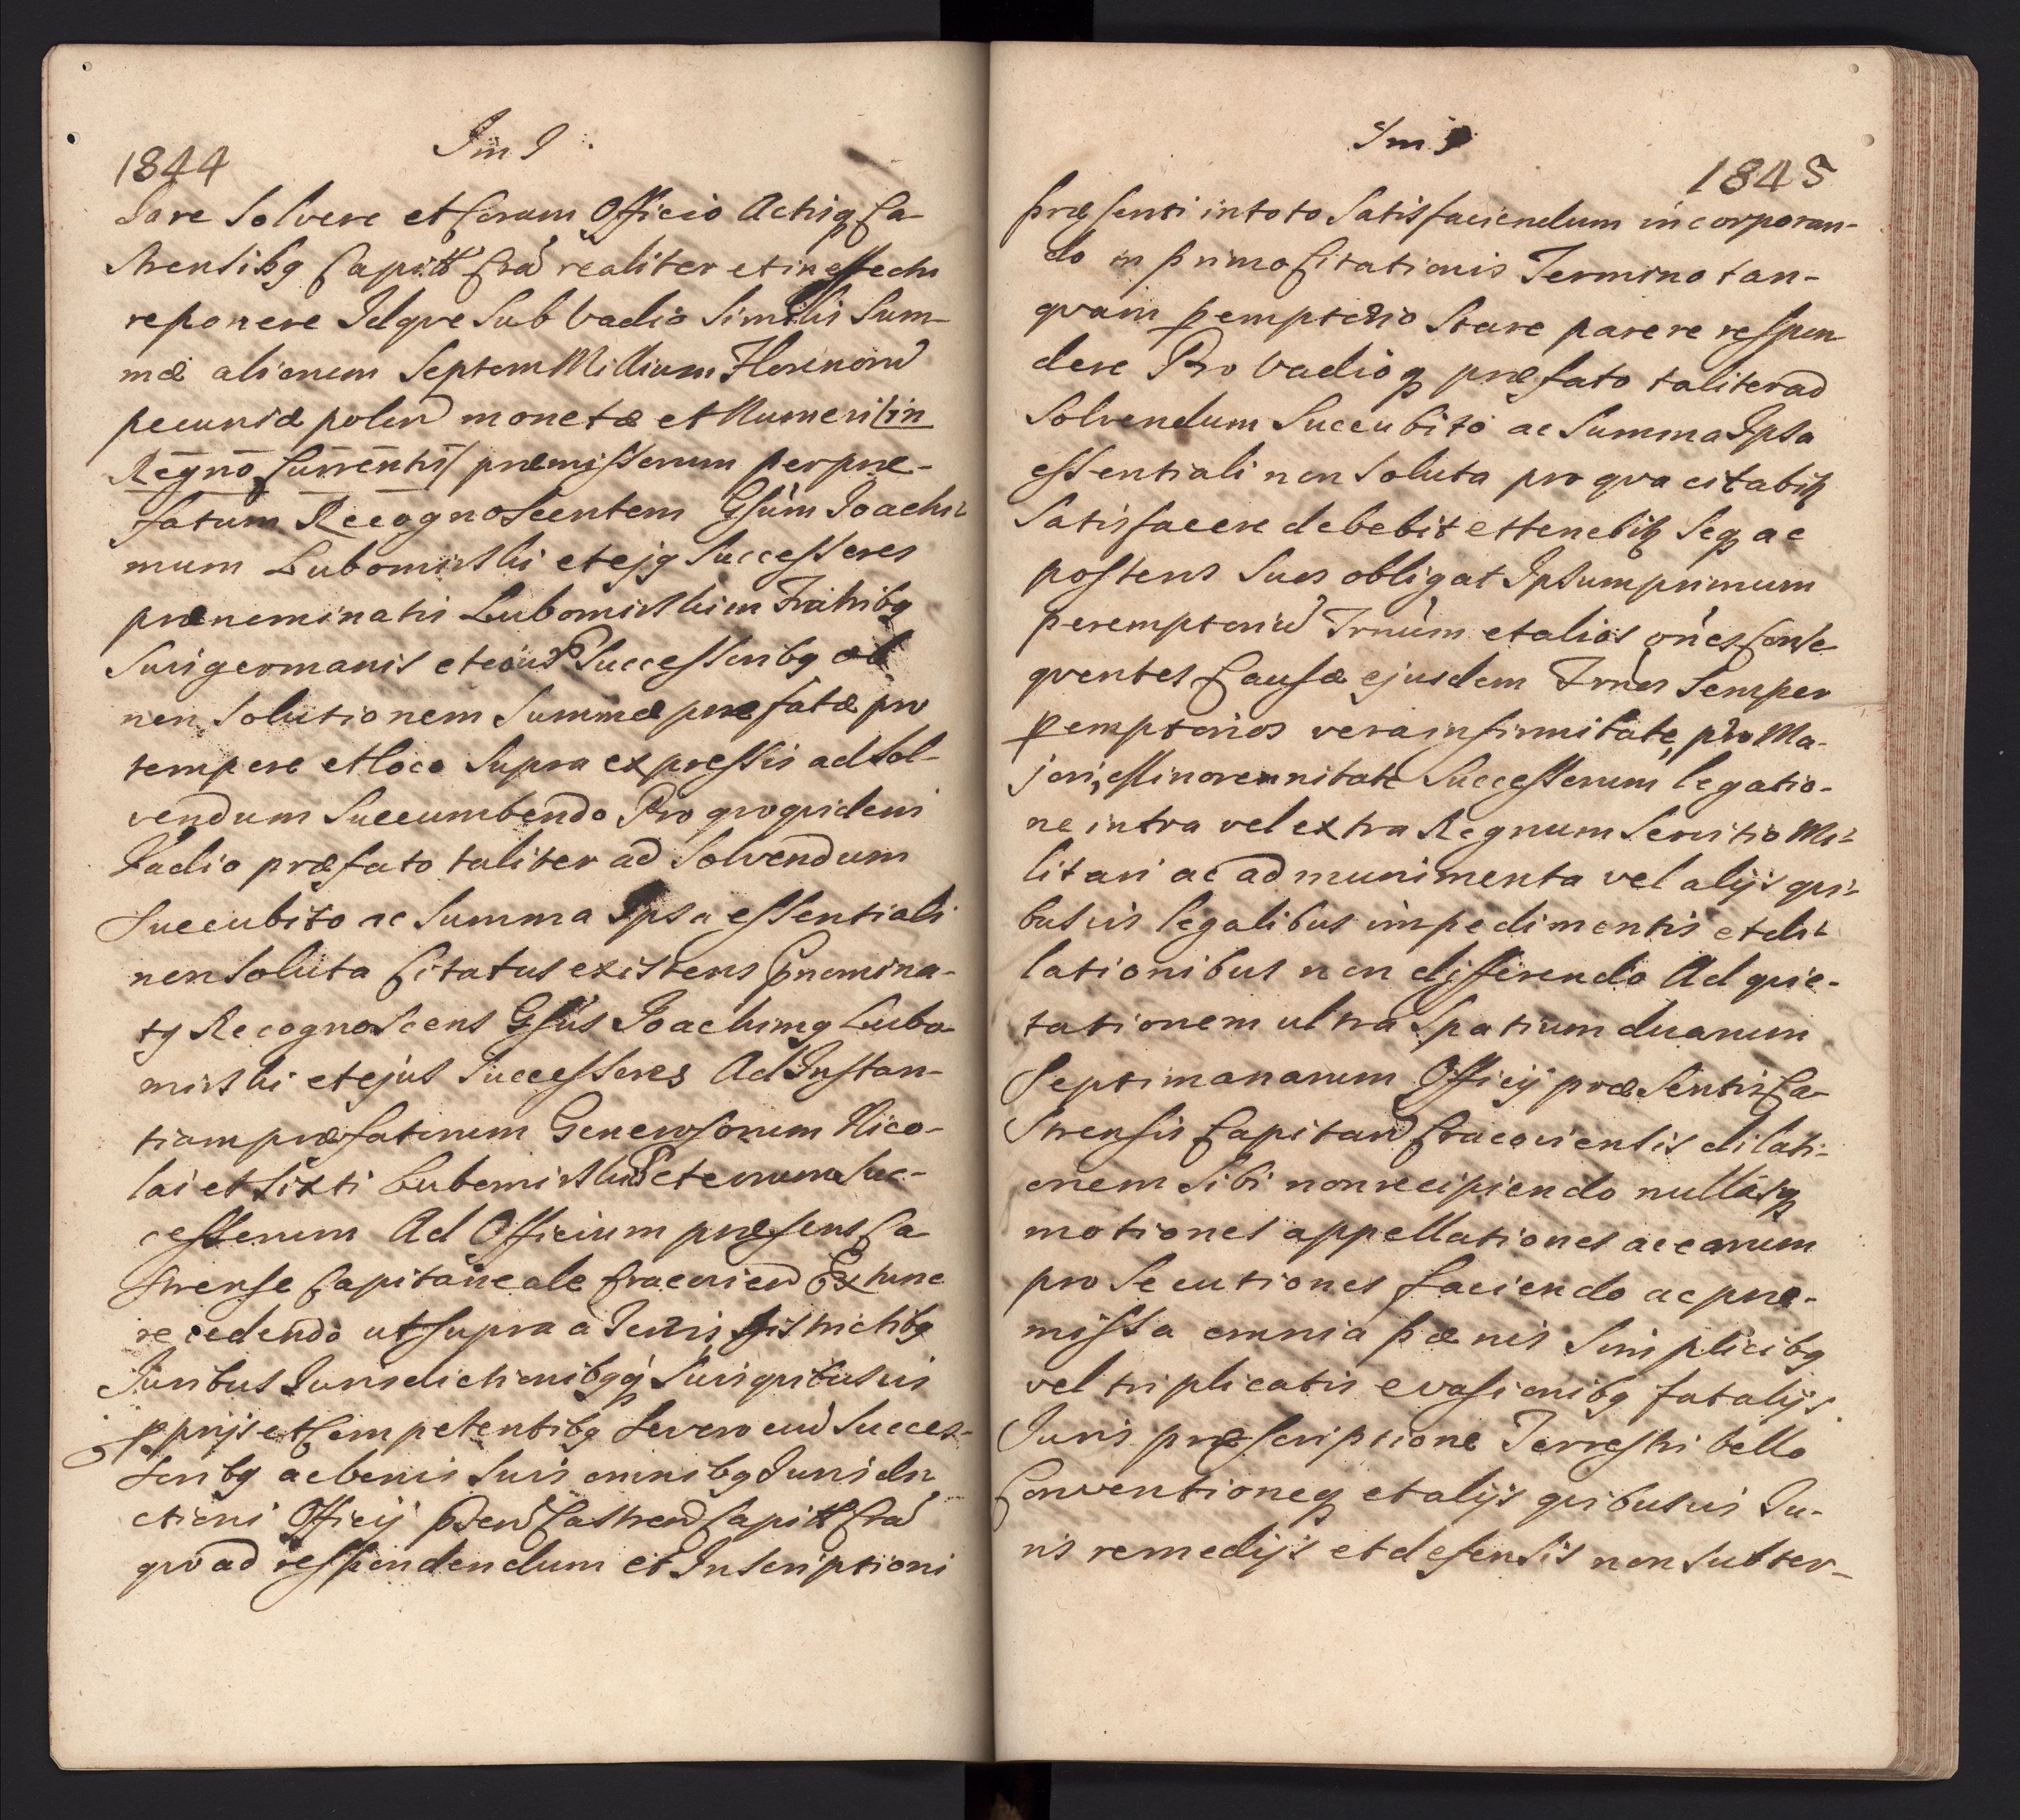 Im I
1844
dare Solvere et Coram Officio Actisq Ca-
strensibg Capittˡ Craᵈ realiter et in effectu
reponere Idqve Sub Vadio Similis Sum-
mæ alienem Septem Millium Florenorᵈ
pecuniæ polenᵈ monetæ et Numeri /in
Regno Currentis/ præmissorum per præ-
fatum Recognoscentem Gsum Joachi-
mum Lubomirski et ejq Successores
prænominatis Lubomirskim Fratribg
Suis germanis et eoru͂ Successoribg ob
non Solutionem Summæ præfatæ pro
tempore et loco Supra expressis ad Sol-
vendum Succumbendo Pro qvo qvidem
Vadio præfato taliter ad Solvendum
Succubito ac Summa Ipsa essentiali
non Soluta Citatus existens Pnomina-
tq Recognoscens Gsus Joachimq Lubo-
mirski et ejus Successores Ad Instan-
tiam præfatorum Generosorum Nico-
lai et Sixti Lubomirskich et eorum Suc-
cessorum Ad Officium præsens Ca-
strense Capitaneale Cracovienᵈ Ex tunc
recedendo ut supra a Terris Districtibg
Juribus Jurisdictionibgq Suis qvibusvis
pprijs et Competentibg Se vero cum Succes-
soribg ac bonis Suis omnibg Jurisdi-
ctioni Officij Psenᵈ Castrenᵈ Capittˡ Craᵈ
qvo ad respondendum et Inscriptioni
Im I
1845
præsenti in toto Satisfaciendum incorporan-
do in primo Citationis Termino tan-
qvam pemptorio Stare parere respon
dere Pro Vadioq præfato taliter ad
Solvendum Succubito ac Summa Ipsa
essentiali non Soluta pro qva citabitq
Satisfacere debebit et tenebitq Seq ac
posteros Suos obligat Ipsum primum
peremptoriuᵈ Trnum et alios omnes Conse
qventes Causæ ejusdem Trnos Semper
pemptorios vera infirmitate, pro Ma-
jori, et minorennitate Successorum legatio-
ne intra vel extra Regnum Servitio Mi-
litari ac ad munimenta vel alijs qvi-
busvis legalibus impedimentis et di-
lationibus non differendo Ad qvie-
tationem ultra Spatium duarum
Septimanarum Officij præsentis Ca-
strensis Capitanᵈ Cracoviensis dilati-
onem Sibi non recipiendo nullasq
motiones appellationes ac earum
prosecutiones faciendo ac præ-
missa omnia pænis Simplicibg
vel triplicatis evasionibg fatalijs
Juris præscriptione Terrestri bello
Conventioneq et alijs qvibusvis Ju-
ris remedijs et defensis non Subter-